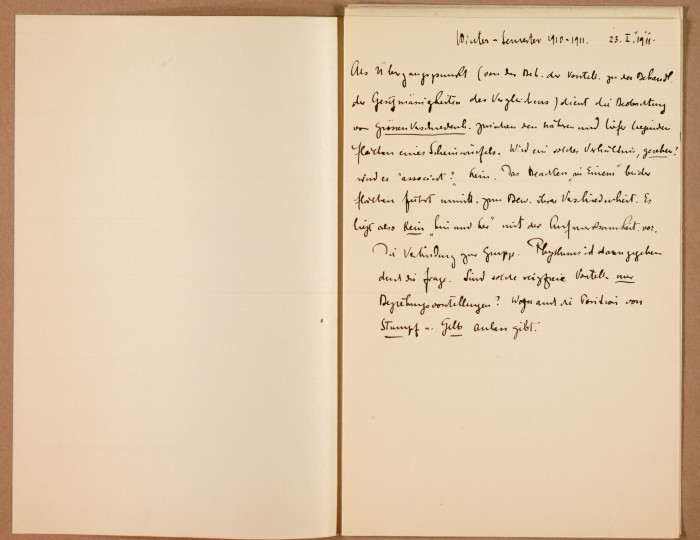 Winter-Semester 1910-1911. 23. I. 1911.
Als Übergangspunkt (von der Beh. der Vorstell. zu der Behandl.
der Gesetzmässigkeiten des Vergleichens) dient die Beobachtung
von Grössenverschiedenh. zwischen den nähern und tiefer liegenden
Flächen eines Scheinwürfels. Wird ein solches Verhältnis, gesehen?
wird es "associirt"? Nein. Das Beachten "in Einem" beider
Flächen führt unmitt. zum Bew. ihrer Verschiedenheit. Es
liegt also kein "hin und her" mit der Aufmerksamkeit. vor.
Die Verbindung zur Gruppe. Rhythmus ist dann gegeben
durch die Frage. Sind solche Vorstell. nur
Beziehungsvorstellungen? Wozu auch die Position von
Stumpf u. Gelb anlass gibt.